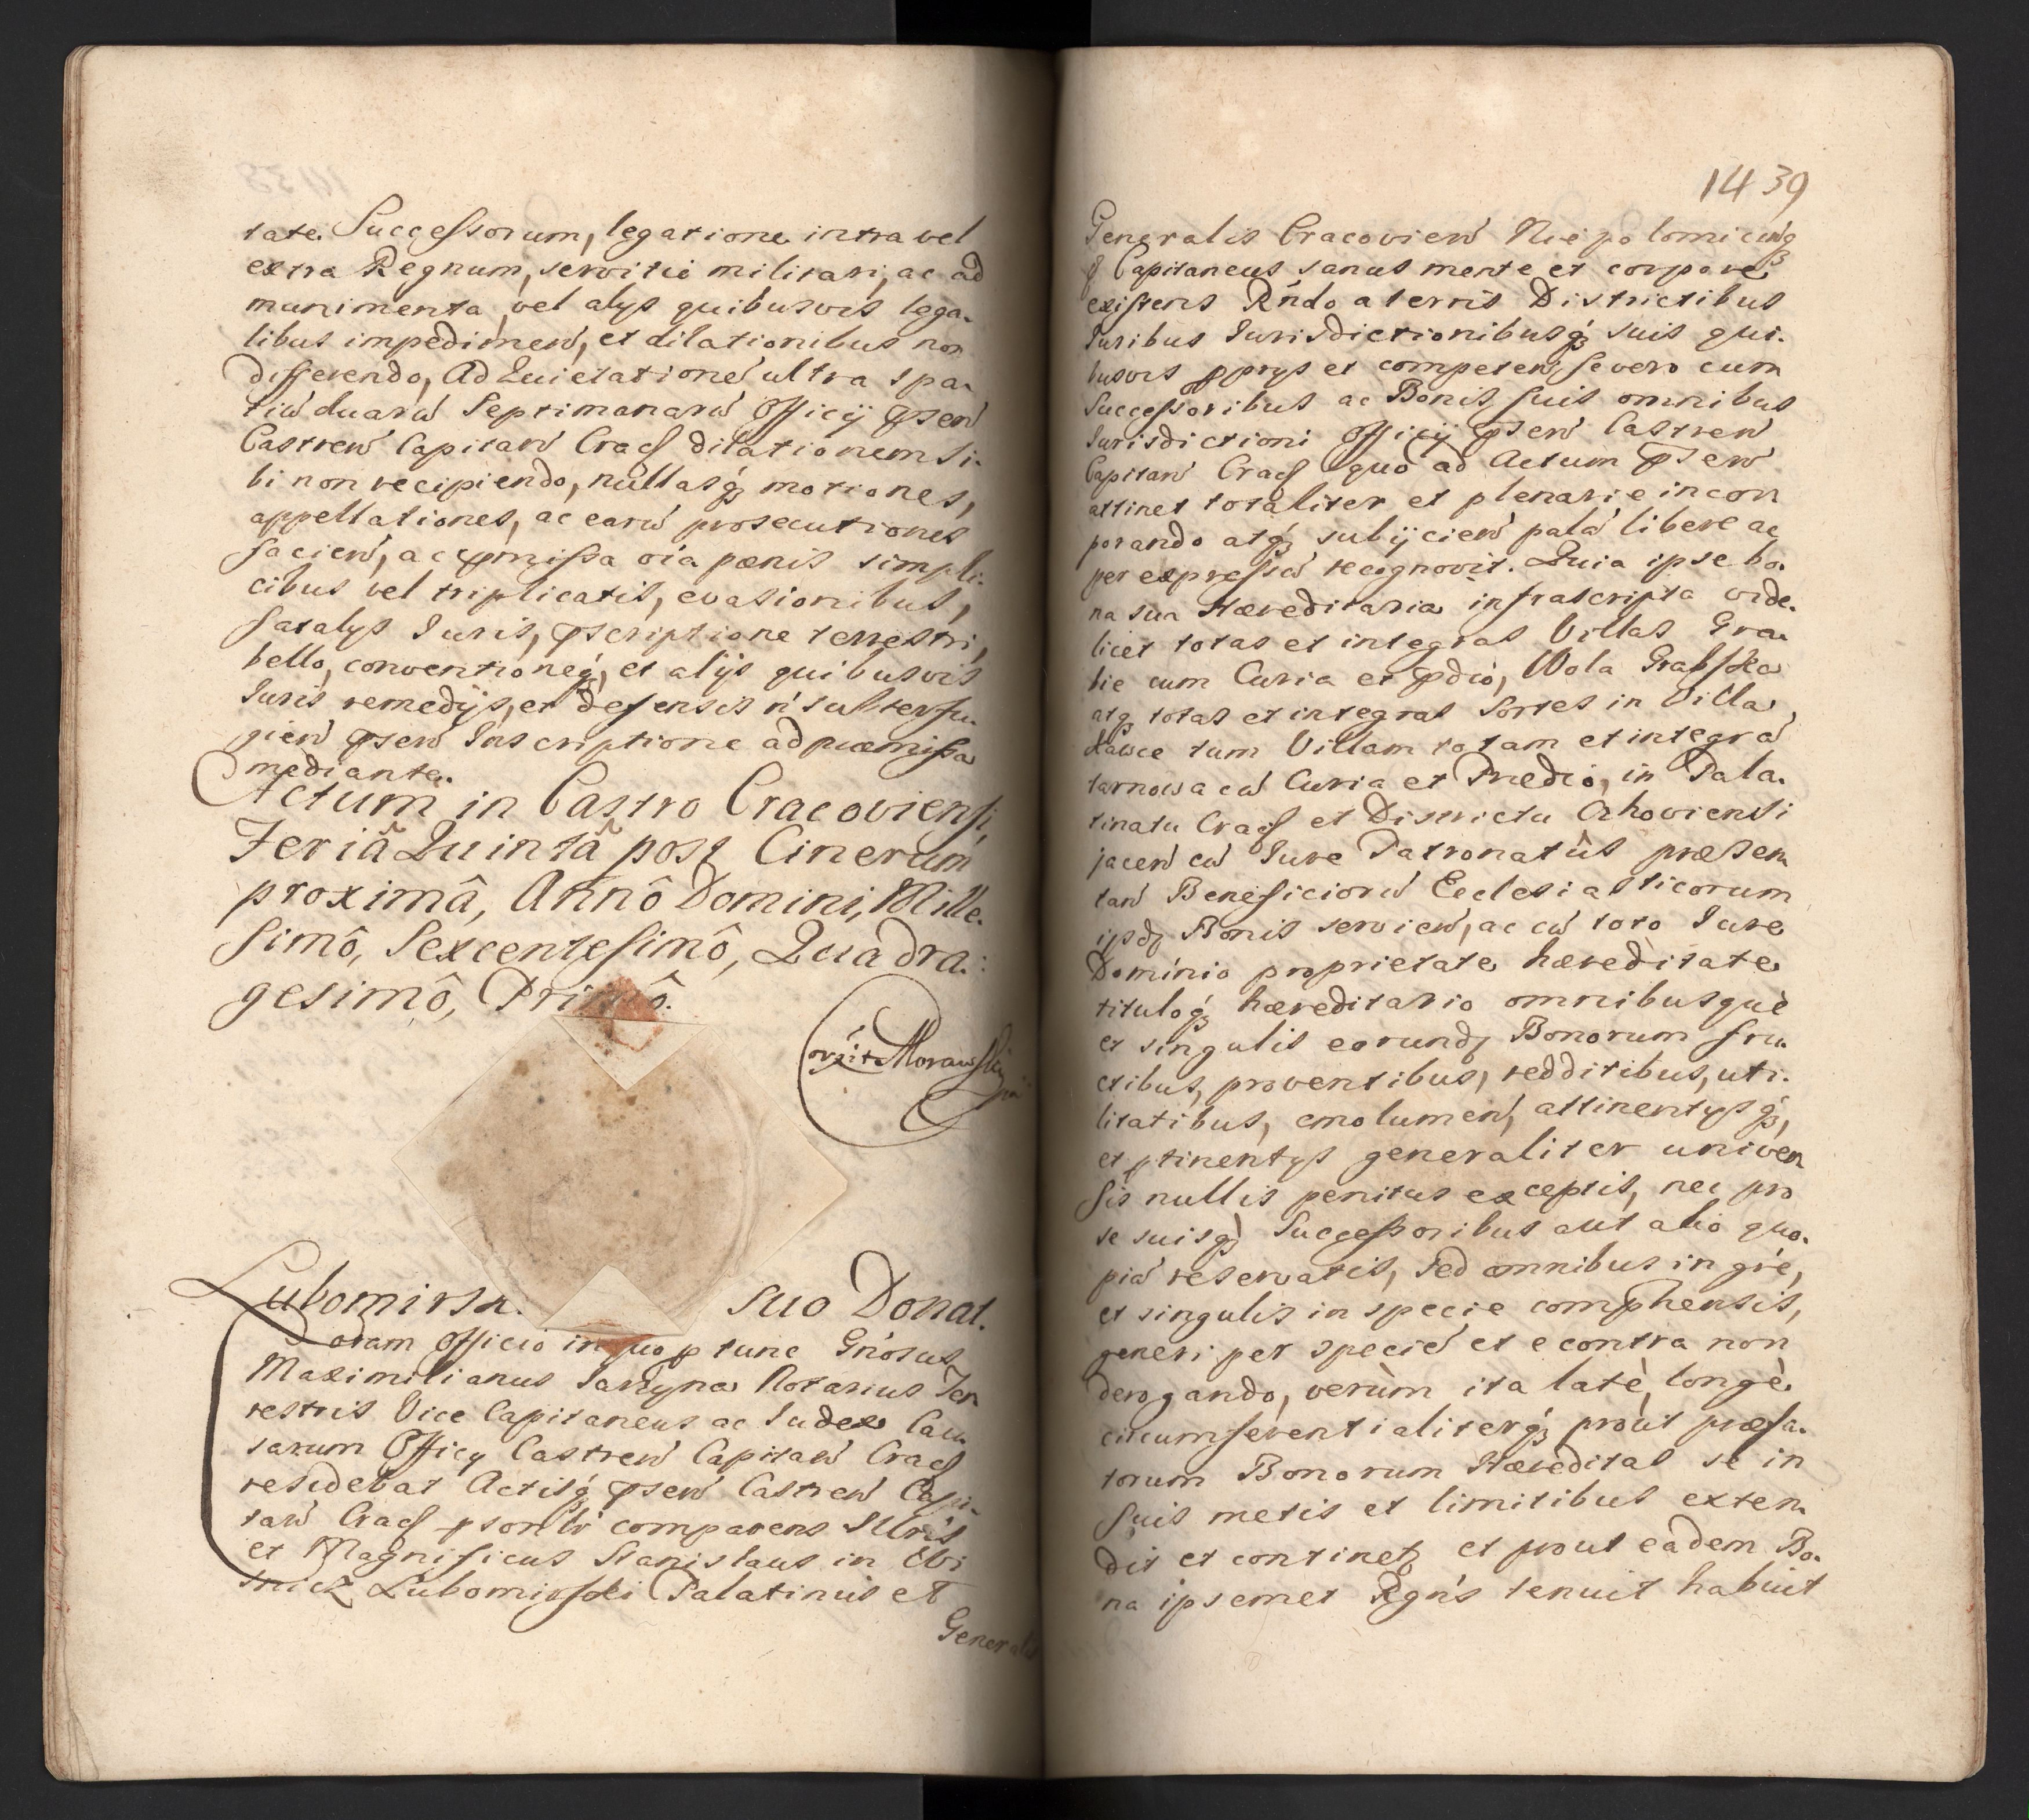 tate Successorum, legatione intra vel
extra Regnum, servitii militari, ac ad
munimenta vel alys quibusvis lega-
libus impedimeń, et dilationibus non
differendo, Ad Quietationé ultra spa-
tiū duarū Septimanarū Officij pseń
Castreń Capitań Cracs dilationem si-
bi non recipiendo, nullasq́ motiones,
appellationes, ac earū prosecutiones
facień, ac pmissa oía pœnis simpli-
cibus vel triplicatis, evasionibus,
fatalys Juris, pscriptione terrestri,
bello, conventioneq́, et alijs quibusvis
Juris remedijs, et defensis ń subterfu-
gień pseń Inscriptione ad præmissa
mediante.
Actum in Castro Cracoviensi,
Feriâ Quintâ post Cinerum
proximâ, Annô Domini, Mille-
simô, Sexcentesimô, Quadra-
gesimô, Primô.
Morawski
Lubomirsk. suo Donat.
Coram Officio in quo p tunc Gńosus
Maximilianus Jarzyna Notarius Ter
restris Vice Capitaneus ac Judex Cau
sarum Officy Castreń Capitań Cracs
residebat Actisq́ pseń Castreń Capi-
tań Cracs psonlr comparens Illris
et Magnificus Stanislaus in Wi
snicz Lubomirski Palatinus et
Generalis
1439
Generalis Cracovień Niepolomiceńq
Capitaneus sanus mente et corpore
existens Rńdo a terris Districtibus
Juribus Jurisdictionibusq́ suis qui-
busvis pprys et competeń, se vero cum
Successoribus ac Bonis suis omnibus
Jurisdictioni Officij pseń Castreń
Capitań Cracs quo ad Actum pseń
attinet totaliter et plenarie incor
porando atq́ subijcień palá libere ac
per expressū recognovit. Quia ipse bo-
na sua Hæreditaria infrascripta vide-
licet totas et integras Villas Gra-
bie cum Curia et pdió, Wola Grabska
atq́ totas et integras Sortes in Villa
Ławce tum Villam totam et integrá
tarnowa cū Curia et Prædió, in Pala-
tinatu Cracs et Districtu Cchoviensi
jaceń cū Jure Patronatûs præsen
tań Beneficiorū Ecclesiasticorum
ipsdȝ Bonis servień, ac cū toto Jure
Dominio proprietate hæreditate
tituloq́ hæreditario omnibusquè
et singulis eorundȝ Bonorum fru-
ctibus, proventibus, redditibus, uti-
litatibus, emolumeń, attinentysq́,
et ptinentys generaliter univer
sis nullis penitus exceptis, nec pro
se suisq́ Successoribus aut alio quo-
piá reservatis, sed omnibus in gŕe,
et singulis in specie comphensis,
generi per specié et e contra non
derogando, verùm ita latè, longè
circumferentialiterq́ proùt præfa-
torum Bonorum Hæreditas se in
suis metis et limitibus exten
dit et continetȝ et prout eadem Bo-
na ipsemet Rgńs tenuit habuit